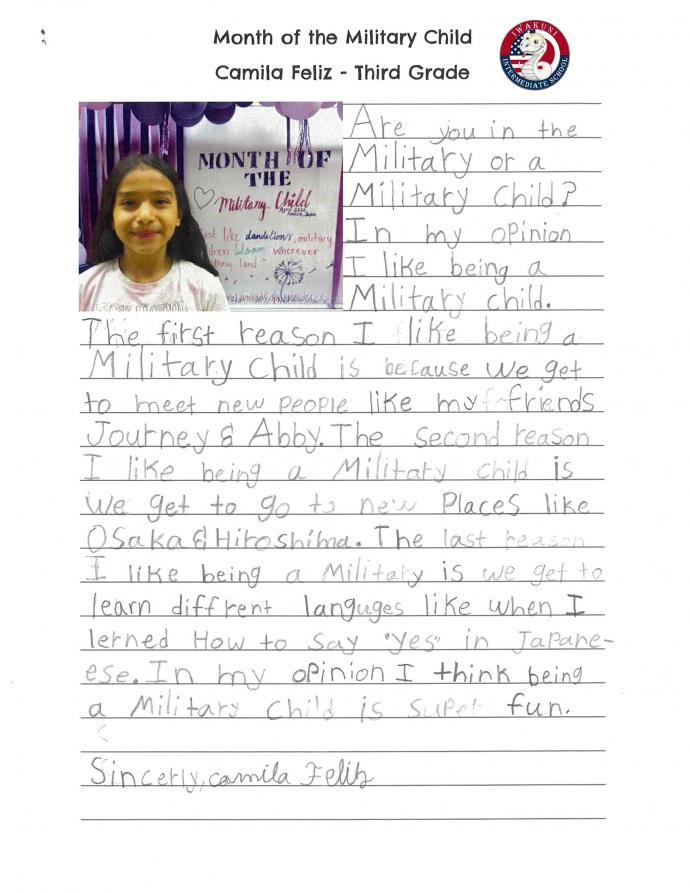 Month of the Military Child
Camila Feliz - Third Grade
IWAKUNI
INTERMEDIATE SCHOOL
MONTH OF
THE
Military Child
Just like dandelions, military
children bloom wherever
they land."
Are you in the
Military or a
Military Child?
In my opinion
I like being a
Military child.
The first reason I like being a
Military Child is because we get
to meet new people like my friends
Journey & Abby. The second reason
I like being a Military child is
we get to go to new Places like
Osaka & Hiroshima. The last reason
I like being a Military is we get to
learn diffrent languges like when I
lerned How to say "yes" in Japane-
ese. In my opinion I think being
a Military Child is super fun.
Sincerly, camila Feliz